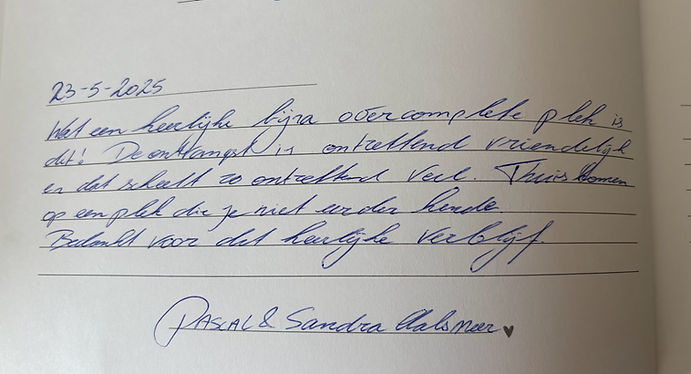 23-5-2025
Wat een heerlijke bijna overcomplete plek is
dit! De ontvangst is ontzettend vriendelijk
en dat scheelt zo ontzettend veel. Thuis komen
op een plek die je niet eerder kende.
Bedankt voor dat heerlijke verblijf.
PASCAL & Sandra Aalsmeer